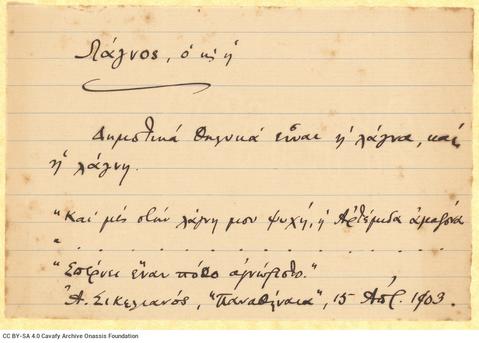 Λάγνος, ὁ κ᾽ ἡ
Δημοτικά θηλυκά εἶναι ἡ λάγνα, καί
ἡ λάγνη.
"Και μές στήν λάγνη μου ψυχή, ἡ Ἀρτέμιδα ἀμαζόνα
" . . . . . . . . . . . . . .
"Σπέρνει ἕναν πόθο ἀγνώριστο."
Ἀ. Σικελιανός, "Παναθήναια", 15 Ἀπρ. 1903.
CC BY-SA 4.0 Cavafy Archive Onassis Foundation